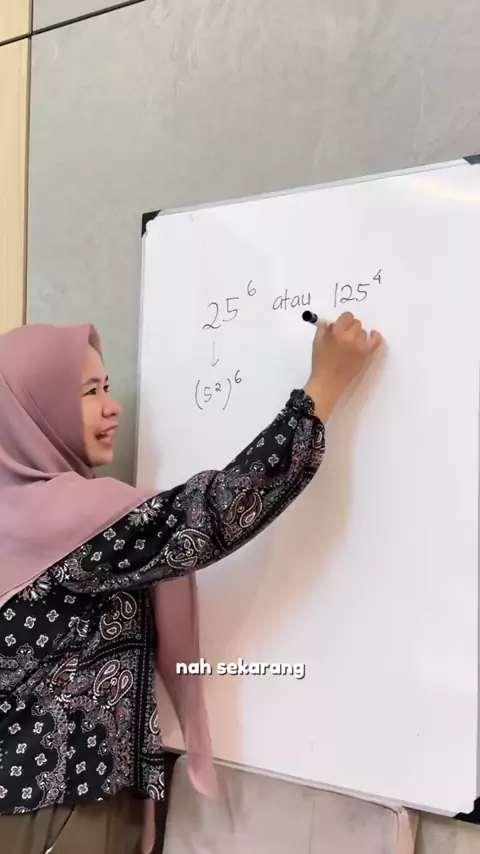 25⁶ atau 125⁴
↓
(5²)⁶
nah sekarang